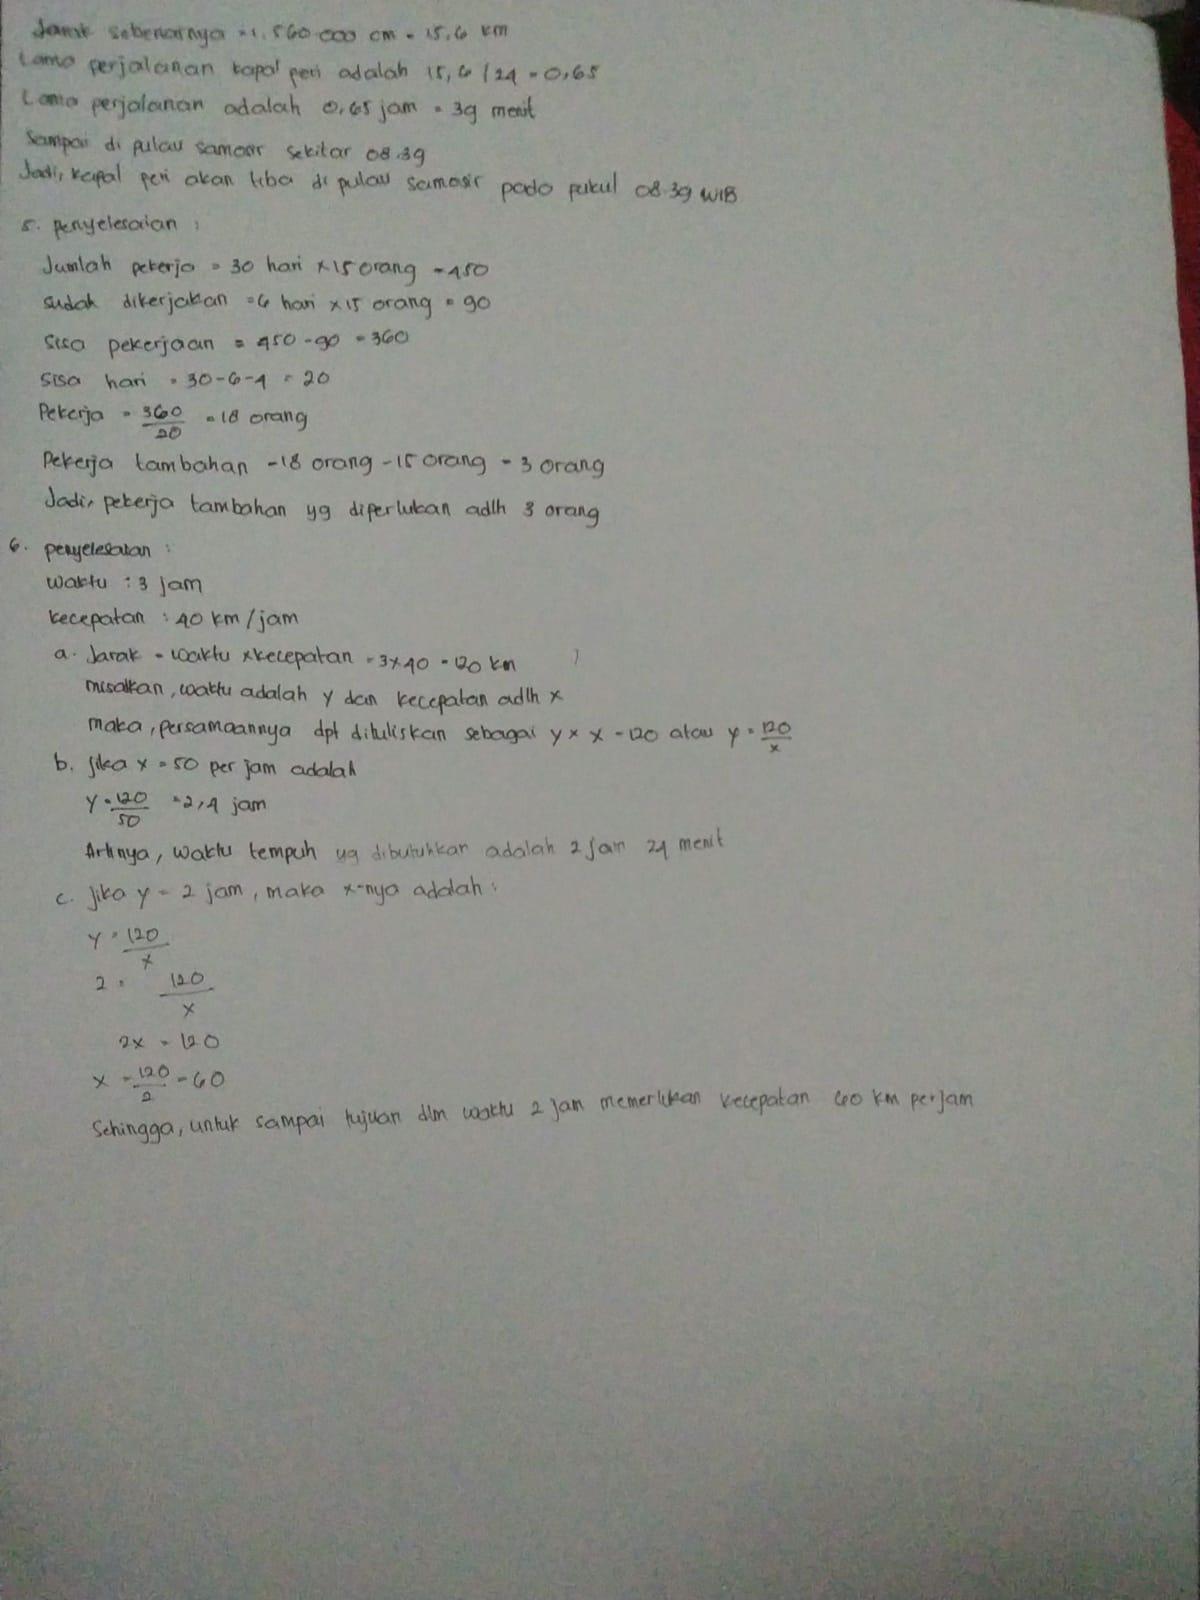 Jarak sebenarnya = 1.560.000 cm = 15,6 km
Lama perjalanan kapal peri adalah 15,6 / 24 = 0,65
Lama perjalanan adalah 0,65 jam = 39 menit
Sampai di pulau samosir sekitar 08.39
Jadi, kapal peri akan tiba di pulau samosir pada pukul 08.39 WIB
5. penyelesaian :
Jumlah pekerja = 30 hari x 15 orang = 450
sudah dikerjakan = 6 hari x 15 orang = 90
Sisa pekerjaan = 450 - 90 = 360
Sisa hari = 30-6-4 = 20
Pekerja = 360/20 = 18 orang
Pekerja tambahan = 18 orang - 15 orang = 3 orang
Jadi, pekerja tambahan yg diperlukan adlh 3 orang
6. penyelesaian :
Waktu : 3 jam
kecepatan : 40 km/jam
a. Jarak = waktu x kecepatan = 3x40 = 120 km
misalkan, waktu adalah y dan kecepatan adlh x
maka, persamaannya dpt dituliskan sebagai y x x = 120 atau y = 120/x
b. Jika x = 50 per jam adalah
y = 120/50 = 2,4 jam
Artinya, waktu tempuh yg dibutuhkan adalah 2 jam 24 menit
c. Jika y = 2 jam, maka x-nya adalah :
y = 120/x
2 = 120/x
2x = 120
x = 120/2 = 60
Sehingga, untuk sampai tujuan dlm waktu 2 jam memerlukan kecepatan 60 km perjam